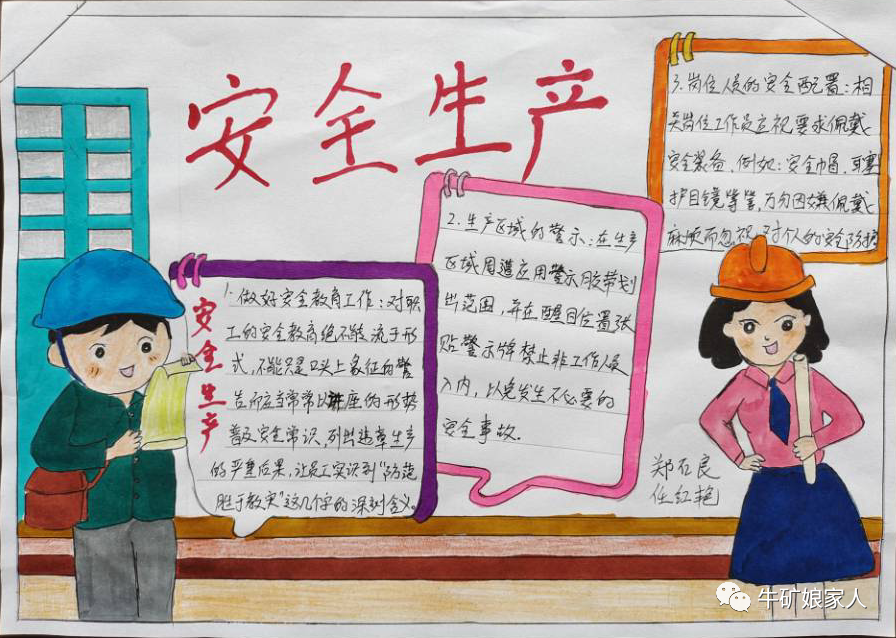 安全生产
安全生产
1.做好安全教育工作:对职
工的安全教育绝不能流于形
式,不能只是口头上象征的警
告,而应当常常以讲座的形势
普及安全常识,列出违章生产
的严重后果,让员工实识到“防范
胜于救灾”这几个字的深刻含义。
2.生产区域的警示:在生产
区域周遭应用警示胶带划
出范围,并在醒目位置张
贴警示牌禁止非工作人员
入内,以免发生不必要的
安全事故。
3.岗位人员的安全配置:相
关岗位工作员应视要求佩戴
安全装备,例如:安全帽,耳塞
护目镜等等,万勿因嫌佩戴
麻烦而忽视对个人的安全防护
郑石良
任红艳
牛矿娘家人